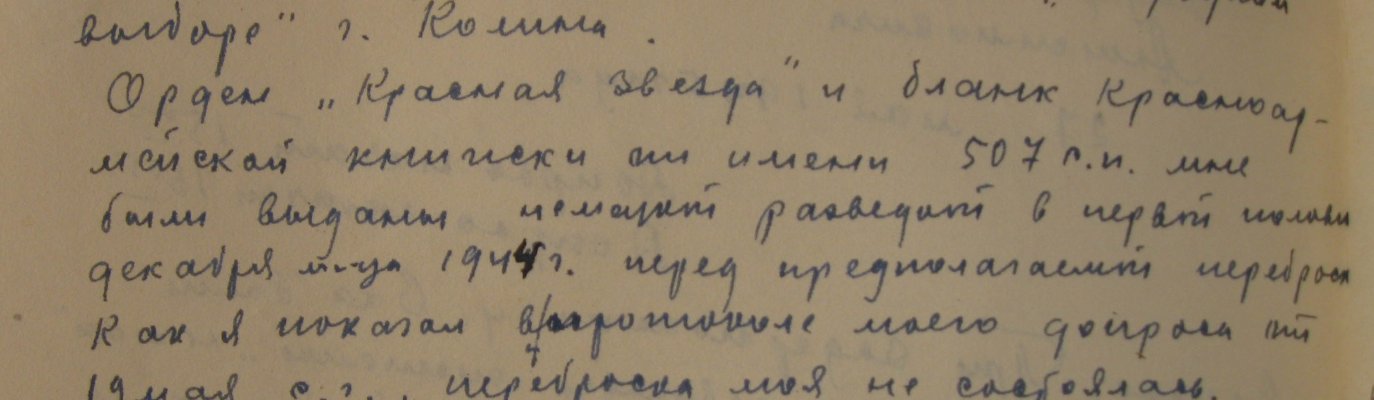 выборе" г. Колина.
Орден „Красная Звезда" и бланк Красноар-
мейской книжски имени 507 с.п. мне
были выданы немецкой разведкой в первой половин
декабря м-ца 1944 г. перед предполагаемой переброск
Как я показал в протоколе моего допроса от
19 мая с.г., переброска моя не состоялась.